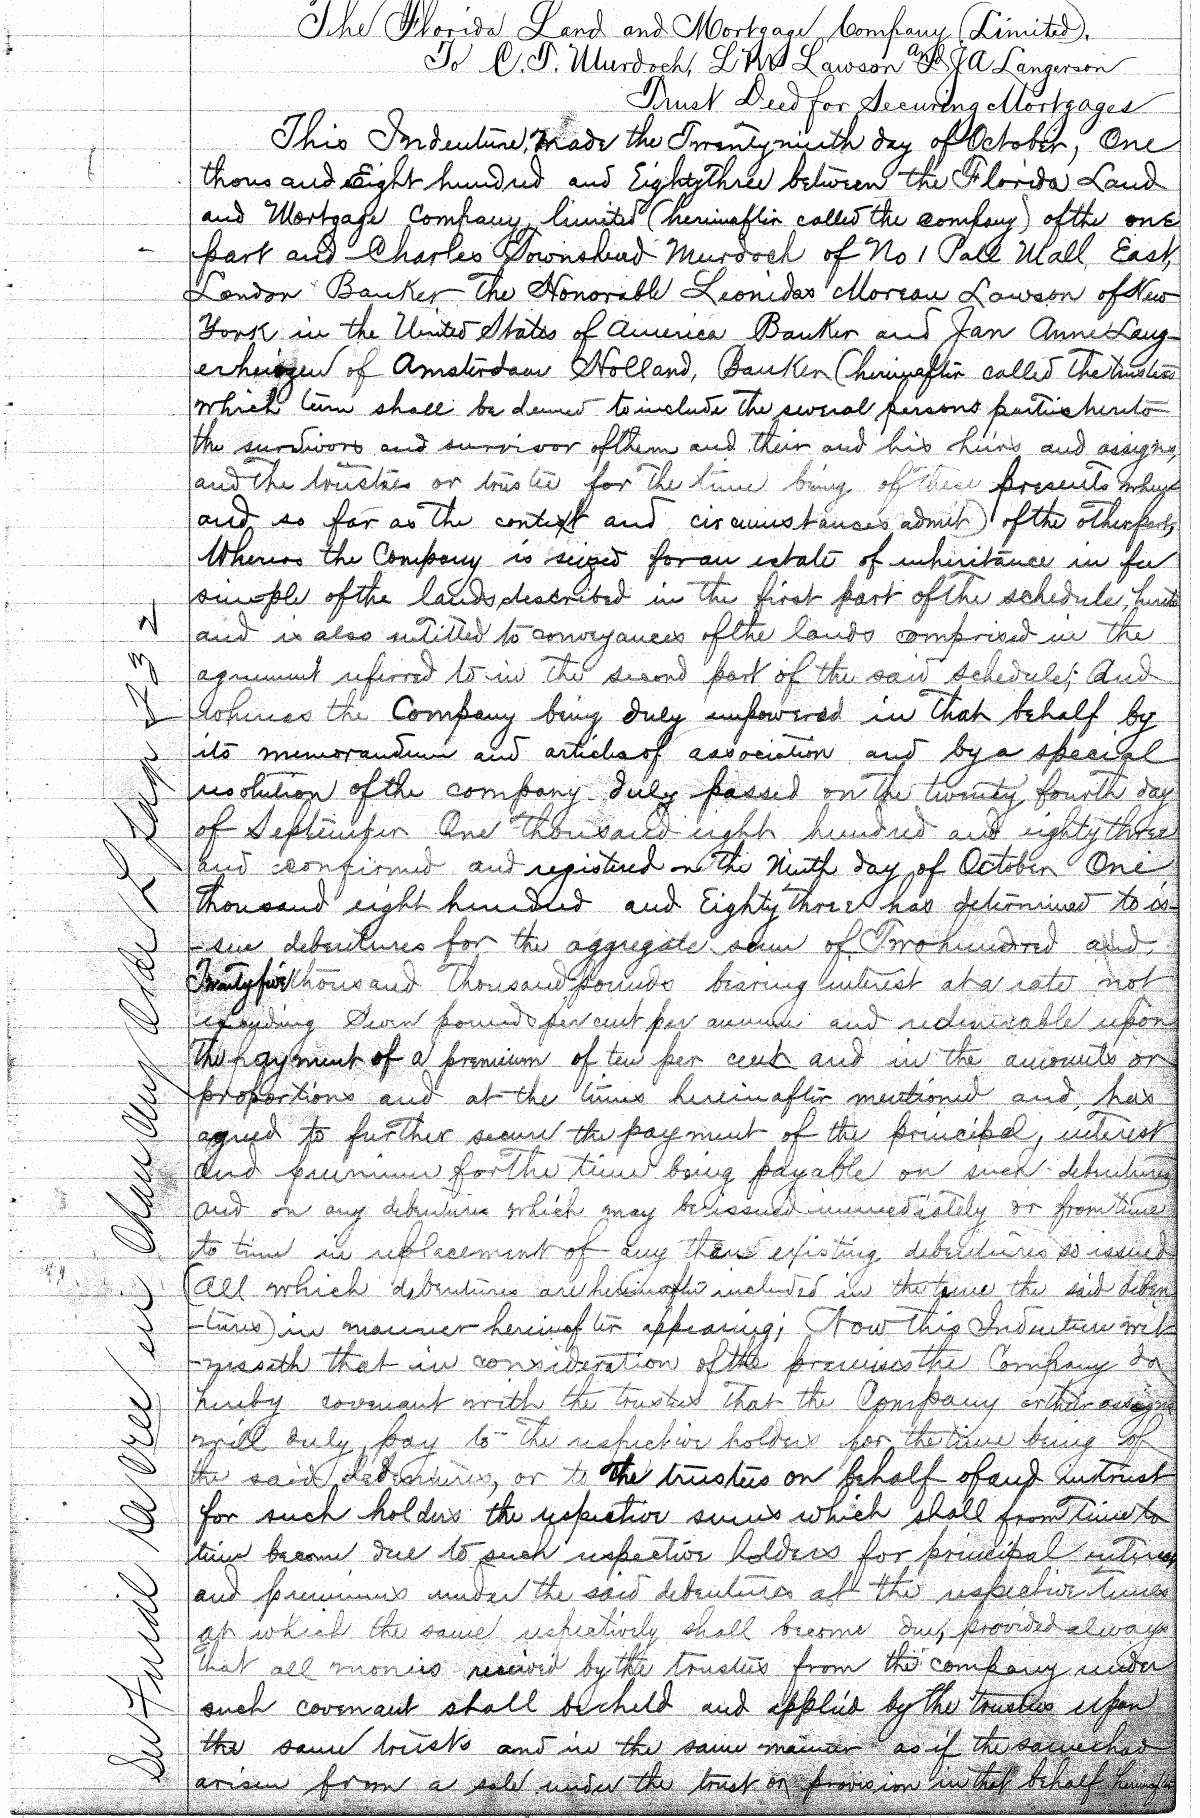 The Florida Land and Mortgage Company (Limited).
To C. T. Murdoch, L M Lawson and J A Langerson
Trust Deed for Securing Mortgages
This Indenture, made the Twenty ninth day of October, One
thousand Eight hundred and Eighty Three between the Florida Land
and Mortgage Company, limited (hereinafter called the company) of the one
part and Charles Townshend Murdoch of No 1 Pall Mall East,
London Banker The Honorable Leonidas Moreau Lawson of New
York in the United States of America Banker and Jan Anne Lang-
erhuizen of Amsterdam Holland, Banker (hereinafter called The trustees
which term shall be deemed to include the several persons parties hereto
the survivors and survivor of them and their and his heirs and assigns,
and The trustees or trustee for the time being of these presents where
and so far as the context and circumstances admit) of the other part,
Whereas the Company is seized for an estate of inheritance in fee
simple of the lands described in the first part of the schedule, hereto
and is also entitled to conveyances of the lands comprised in the
agreement referred to in the second part of the said schedule; And
whereas the Company being duly empowered in that behalf by
its memorandum and articles of association and by a special
resolution of the company duly passed on the twenty fourth day
of September One thousand eight hundred and eighty three
and confirmed and registered on the Ninth day of October One
thousand eight hundred and Eighty three has determined to is-
-sue debentures for the aggregate sum of Two hundred and
Twenty five thousand Thousand pounds bearing interest at a rate not
exceeding Seven pounds per cent per annum and redeemable upon
the payment of a premium of ten per cent and in the amounts or
proportions and at the times hereinafter mentioned and, has
agreed to further secure the payment of the principal, interest
and premium for the time being payable on such debentures
and on any debentures which may be issued immediately or from time
to time in replacement of any then existing debentures so issued
(all which debentures are hereinafter included in the term the said deben
-tures) in manner hereinafter appearing; Now this Indenture wit-
-nesseth that in consideration of the premises the Company do
hereby covenant with the trustees that the Company or their assigns
will duly pay to the respective holders for the time being of
the said debentures, or to the trustees on behalf of and in trust
for such holders the respective sums which shall from time to
time become due to such respective holders for principal interest
and premiums under the said debentures at the respective times
at which the same respectively shall become due, provided always
that all monies received by the trustees from the company under
such covenant shall be held and applied by the trustees upon
the same trusts and in the same manner as if the same had
arisen from a sale under the trust or provision in that behalf hereinafter
See Final Decree in Chancery Order L Page 532